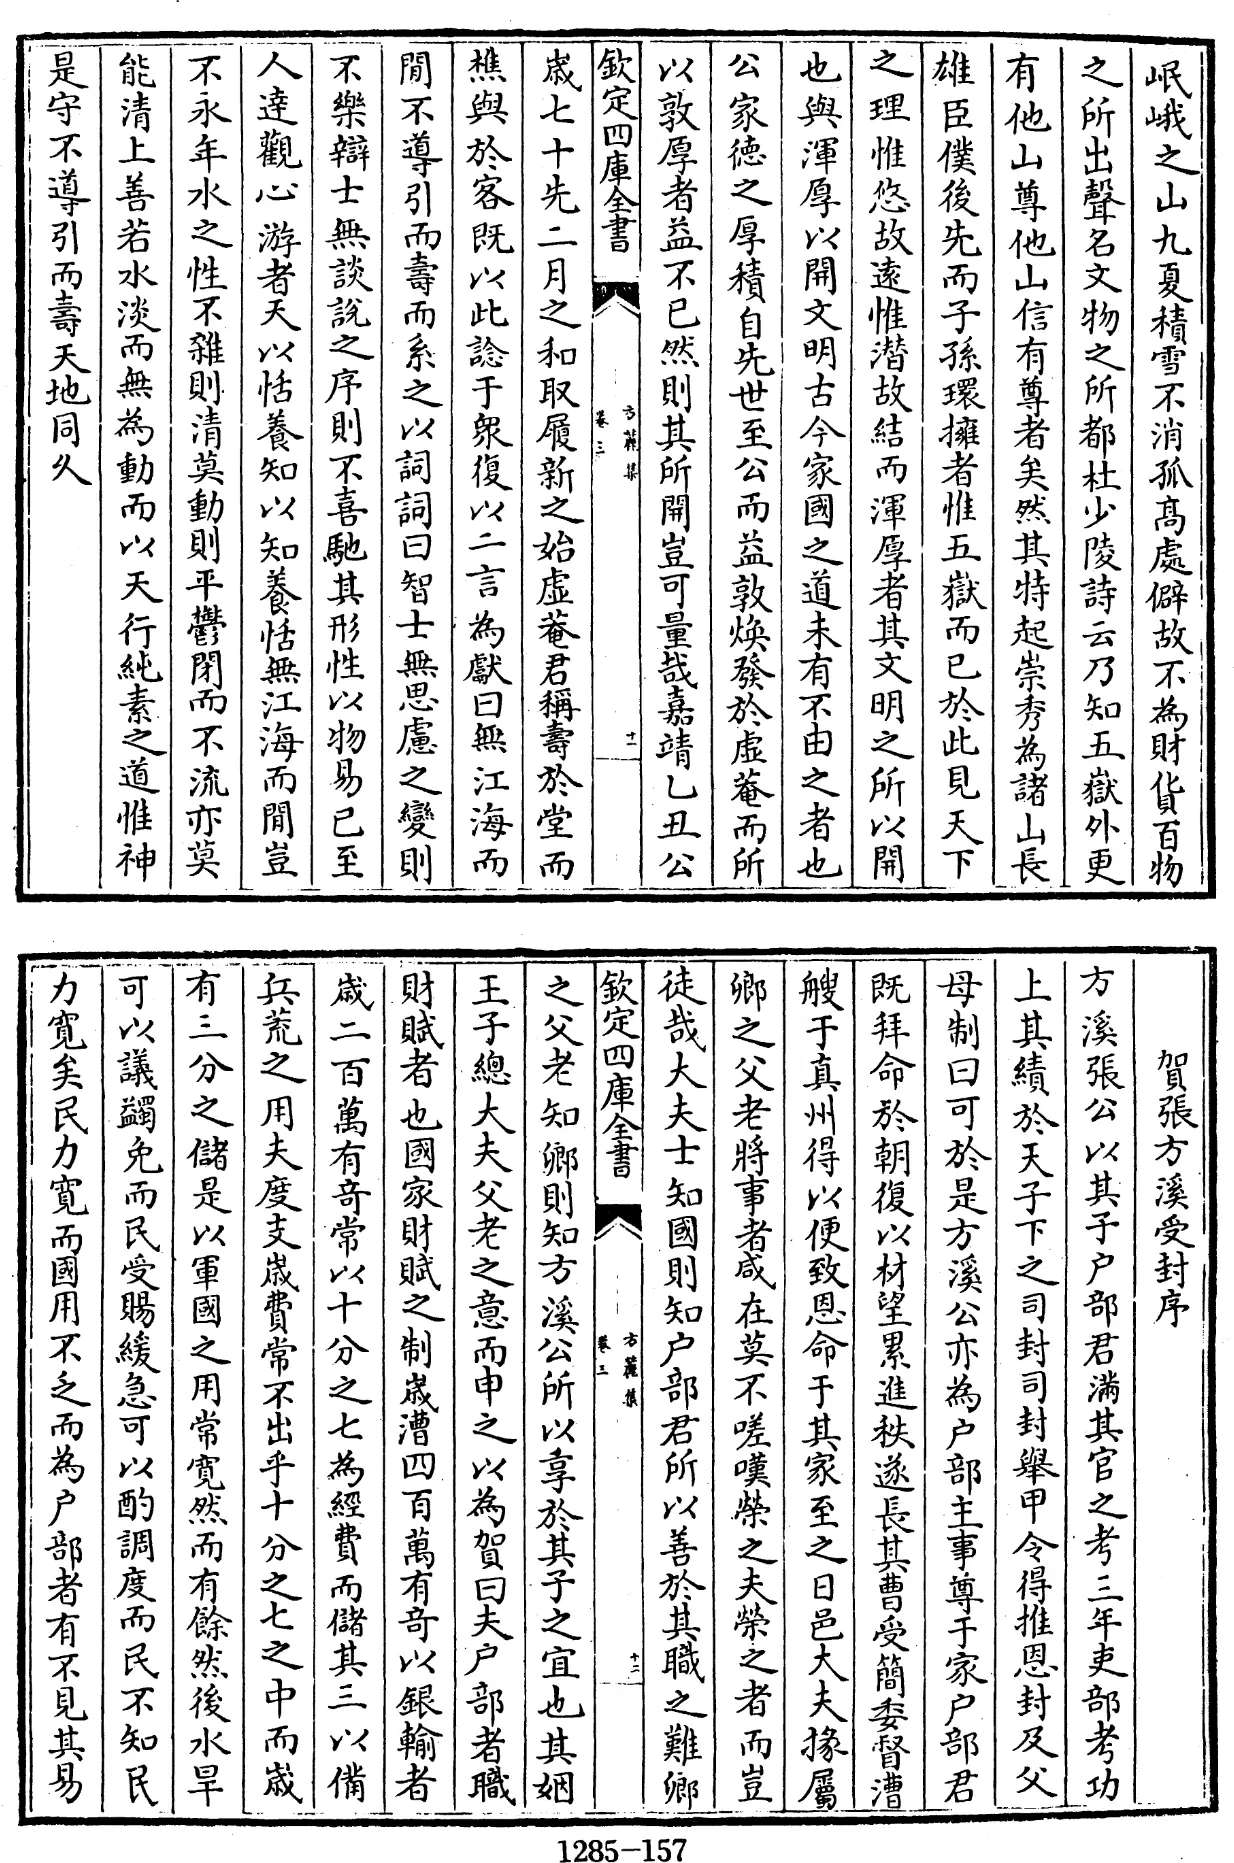 岷峨之山九夏積雪不消孤髙處僻故不為財貨百物
之所出聲名文物之所都杜少陵詩云乃知五嶽外更
有他山尊他山信有尊者矣然其特起崇秀為諸山長
雄臣僕後先而子孫環擁者惟五嶽而已於此見天下
之理惟悠故遠惟潜故結而渾厚者其文明之所以開
也與渾厚以開文明古今家國之道未有不由之者也
公家徳之厚積自先世至公而益敦煥發於虛菴而所
以敦厚者益不已然則其所開豈可量哉嘉靖乙丑公
欽定四庫全書
方麓集
卷三
十一
歳七十先二月之和取履新之始虛菴君稱壽於堂而
樵與於客既以此諗于衆復以二言為獻曰無江海而
閒不導引而壽而系之以詞詞曰智士無思慮之變則
不樂辯士無談説之序則不喜馳其形性以物易已至
人達觀心游者天以恬養知以知養恬無江海而閒豈
不永年水之性不雜則清莫動則平鬱閉而不流亦莫
能清上善若水淡而無為動而以天行純素之道惟神
是守不導引而壽天地同久
賀張方溪受封序
方溪張公以其子户部君滿其官之考三年吏部考功
上其績於天子下之司封司封舉甲令得推恩封及父
母制曰可於是方溪公亦為户部主事尊于家户部君
既拜命於朝復以材望累進秩遂長其曹受簡委督漕
艘于真州得以便致恩命于其家至之日邑大夫掾屬
鄉之父老將事者咸在莫不嗟嘆榮之夫榮之者而豈
徒哉大夫士知國則知户部君所以善於其職之難鄉
欽定四庫全書
方麓集
卷三
十二
之父老知鄉則知方溪公所以享於其子之宜也其姻
王子總大夫父老之意而申之以為賀曰夫户部者職
財賦者也國家財賦之制歳漕四百萬有奇以銀輸者
歳二百萬有奇常以十分之七為經費而儲其三以備
兵荒之用夫度支歳費常不出乎十分之七之中而歳
有三分之儲是以軍國之用常寛然而有餘然後水旱
可以議蠲免而民受賜緩急可以酌調度而民不知民
力寛矣民力寛而國用不乏而為户部者有不見其易
1285-157